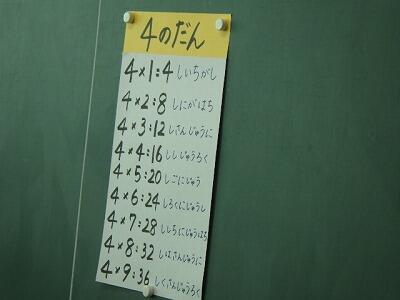 4のだん
4×1=4 しいちがし
4×2=8 しにがはち
4×3=12 しさんじゅうに
4×4=16 ししじゅうろく
4×5=20 しごにじゅう
4×6=24 しろくにじゅうし
4×7=28 ししちにじゅうはち
4×8=32 しはさんじゅうに
4×9=36 しくさんじゅうろく